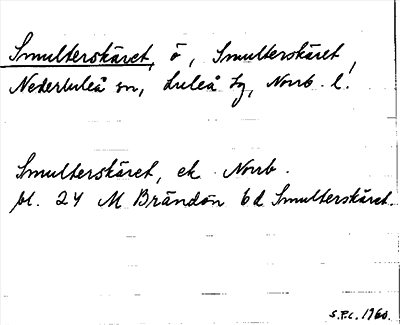 Smulterskäret, ö, Smulterskäret,
Nederluleå sn, Luleå tg, Norrb. l.
Smulterskäret, ek Norrb.
bl. 24 M Brändön bd Smulterskäret.
S.P.C. 1960.